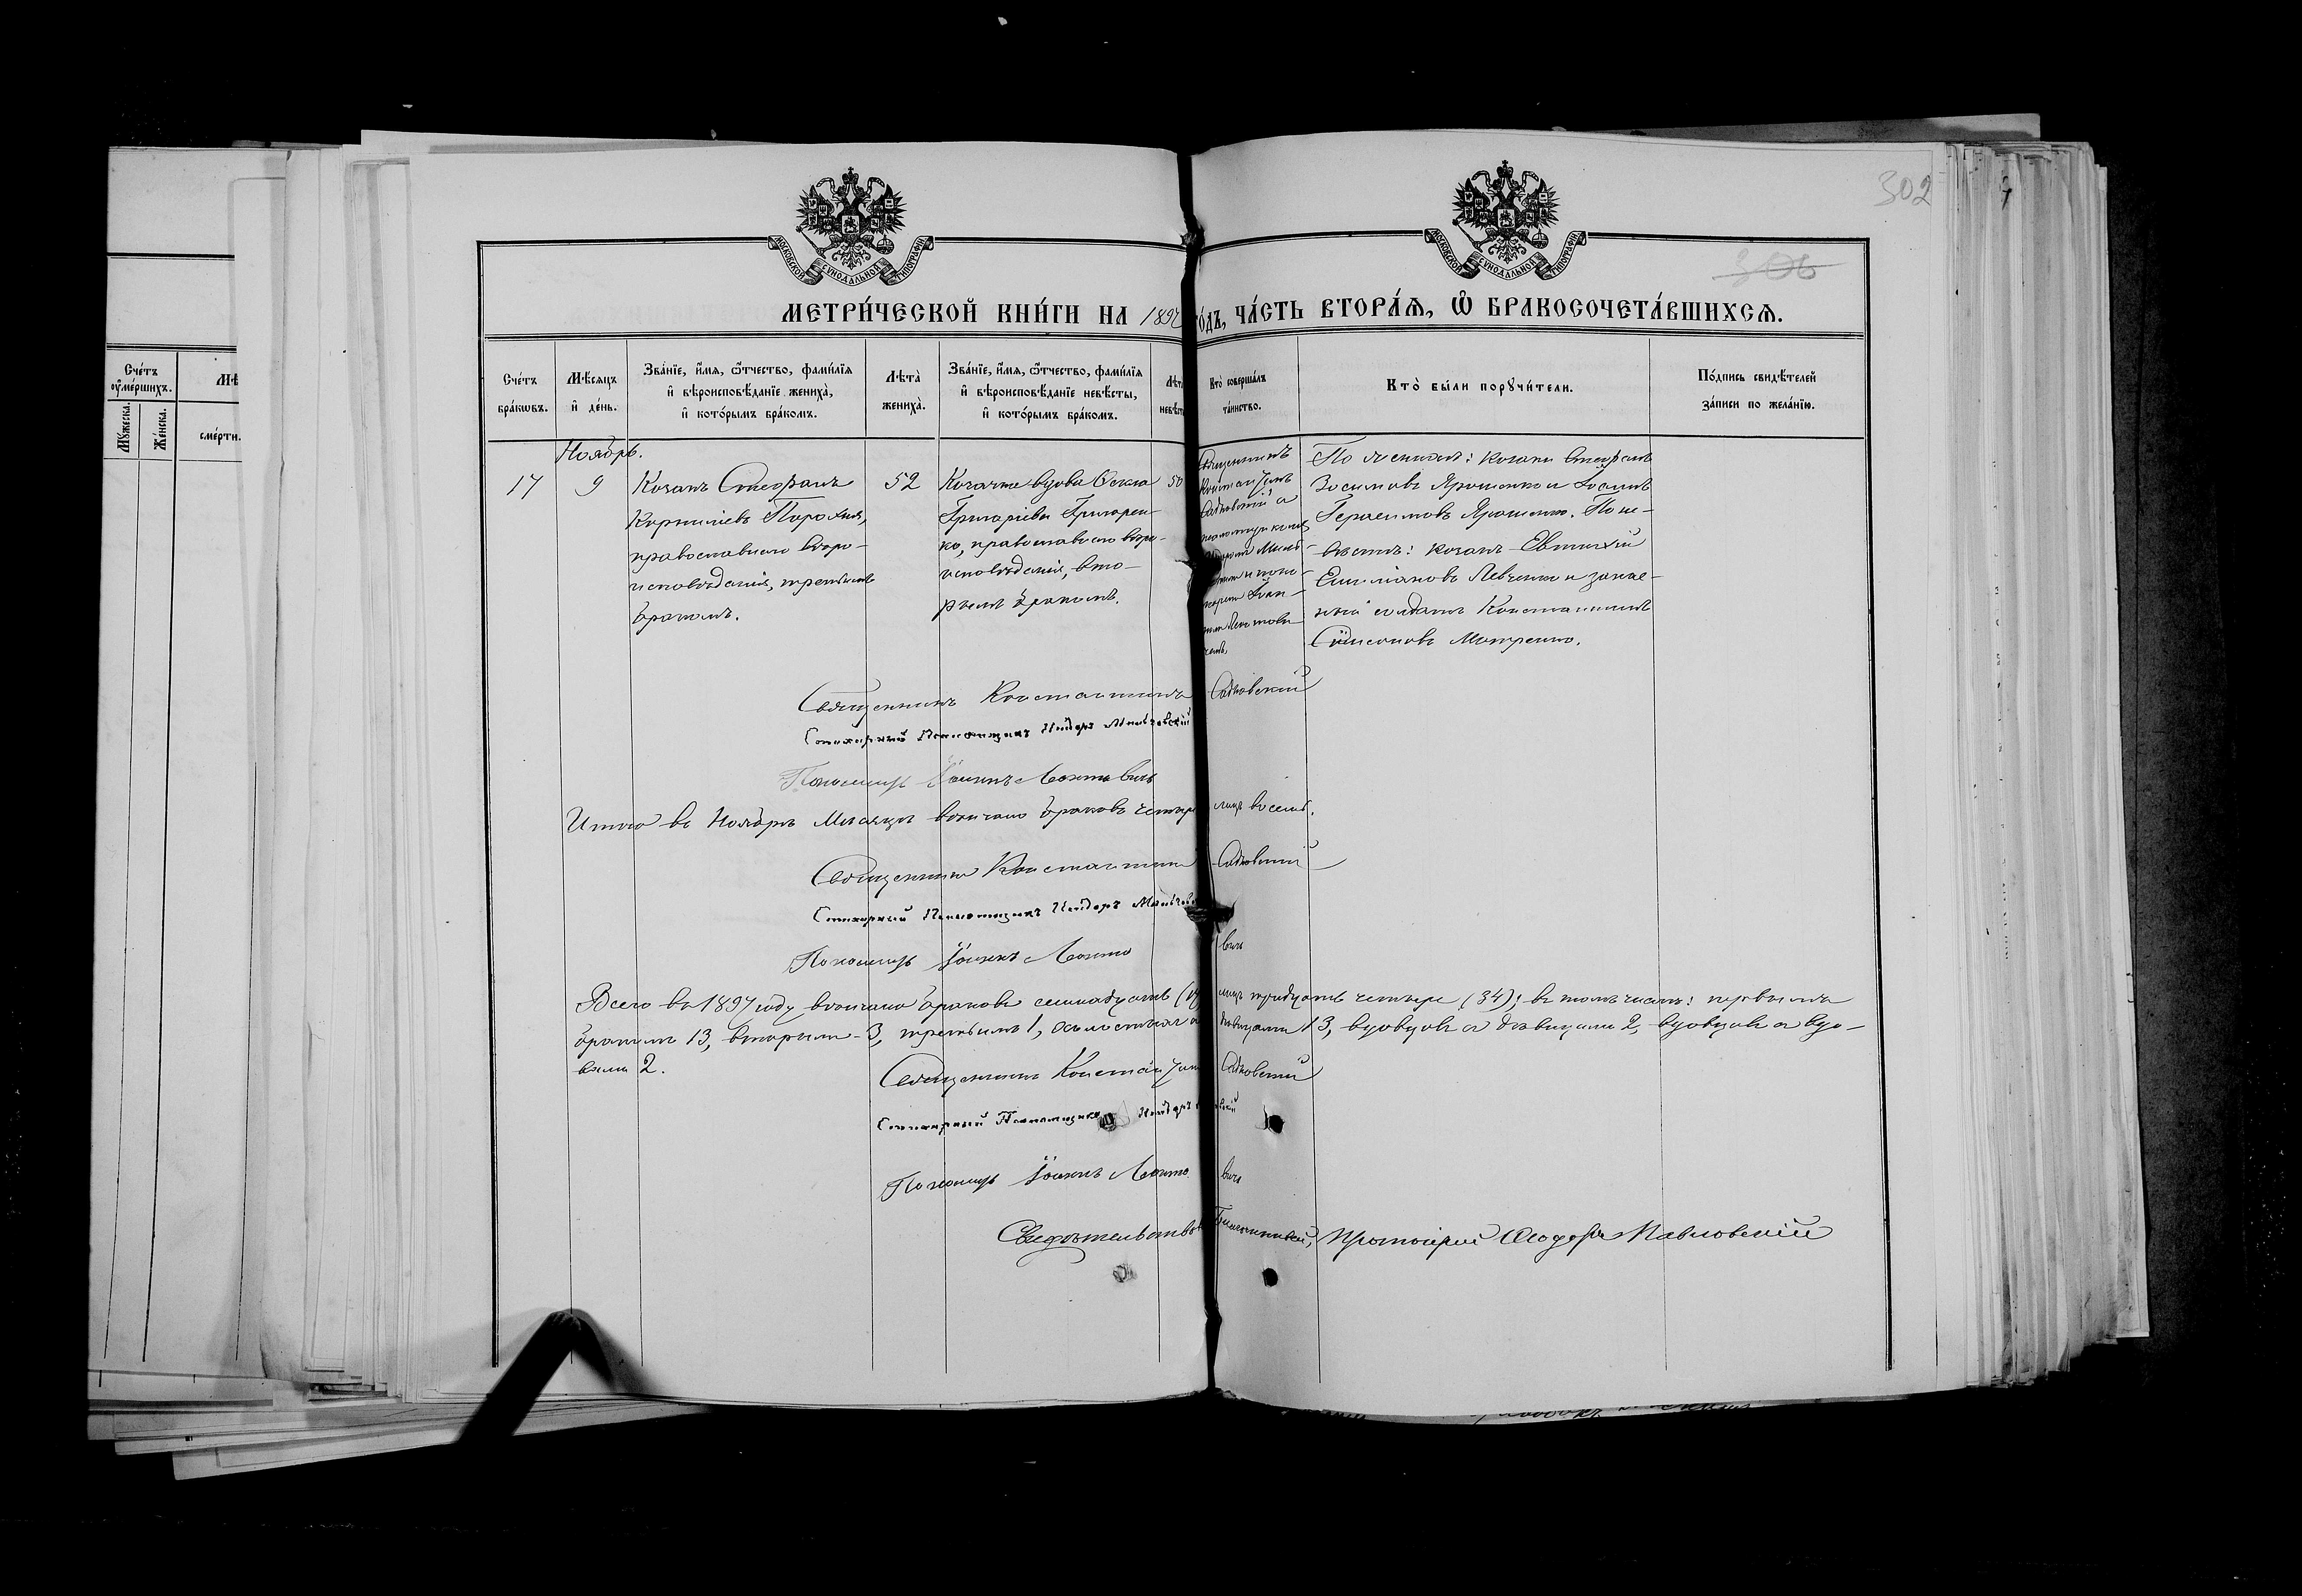 302
306
МОСКОВСКОЙ СУНОДАЛЬНОЙ ТИПОГРАФИИ
МОСКОВСКОЙ СУНОДАЛЬНОЙ ТИПОГРАФИИ
МЕТРИ́ЧЕСКОЙ КНИ́ГИ НА 1897 ГО́ДЪ, ЧА́СТЬ ВТОРА́Ѧ, Ѽ БРАКОСОЧЕТА́ВШИХСѦ.
Сче́тъ
оу҆ме́ршихъ.
Мꙋ́жеска.
Же́нска.
Мѣ
сме́рти.
Сче́тъ
бра́кѡвъ.
Мѣ́сѧцъ
и҆ де́нь.
Зва́нїе, и҆́мѧ, ѻ҆́тчество, фами́лїѧ
и҆ вѣроисповѣ́данїе жениха̀,
и҆ кото́рымъ бра́комъ.
Лѣ́та
жениха̀.
Зва́нїе, и҆́мѧ, ѻ҆́тчество, фами́лїѧ
и҆ вѣроисповѣ́данїе невѣ́сты,
и҆ кото́рымъ бра́комъ.
Лѣт
невѣст
Кто̀ соверша́лъ
та́инство.
Кто̀ бы́ли порꙋчи́тели.
По́дпись свидѣ́телей
за́писи по жела́нїю.
Ноябрь.
17
9
Козакъ Стефанъ
Корнилiевъ
православнаго вѣро-
исповѣданiя, третьимъ
бракомъ.
52
Козачка вдова Ѳекла
Григорiева Григорен-
ко, православнаго вѣро-
исповѣданiя, вто-
рымъ бракомъ.
50
Священникъ
Константинъ
Садковскiй съ
По женихѣ: козаки Стефанъ
Зосимовъ Ярошенко и Iоаннъ
Герасимовъ Ярошенко. По не-
вѣстѣ: козакъ Евтихiй
Левченко и запас-
ный солдатъ Константинъ
Сѵмеоновъ Мотренко.
Священникъ Константинъ Садковскiй
Стихарный Псаломщикъ Исидоръ
Пономарь Iоаннъ Леонтовичъ
Итого въ Ноябрѣ Мѣсяцѣ вѣнчано браковъ четыре лицъ восемь.
Священникъ Константинъ Садковскiй
Стихарный Псаломщикъ Исидоръ
Пономарь Iоаннъ Леонтовичъ
Всего въ 1897 году вѣнчано браковъ семнадцать (17) лицъ тридцать четыре (34); въ томъ числѣ: первымъ
бракомъ 13, вторымъ-3, третьимъ 1, холостыхъ съ дѣвицами 13, вдовцовъ съ дѣвицами 2, вдовцовъ съ вдо-
вами 2.
Священникъ Константинъ Садковскiй
Стихарный Псаломщикъ Исидоръ
Пономарь Iоаннъ Леонтовичъ
Свидѣтельствовалъ Благочинный, Протоiерей Ѳеодоръ Павловскiй